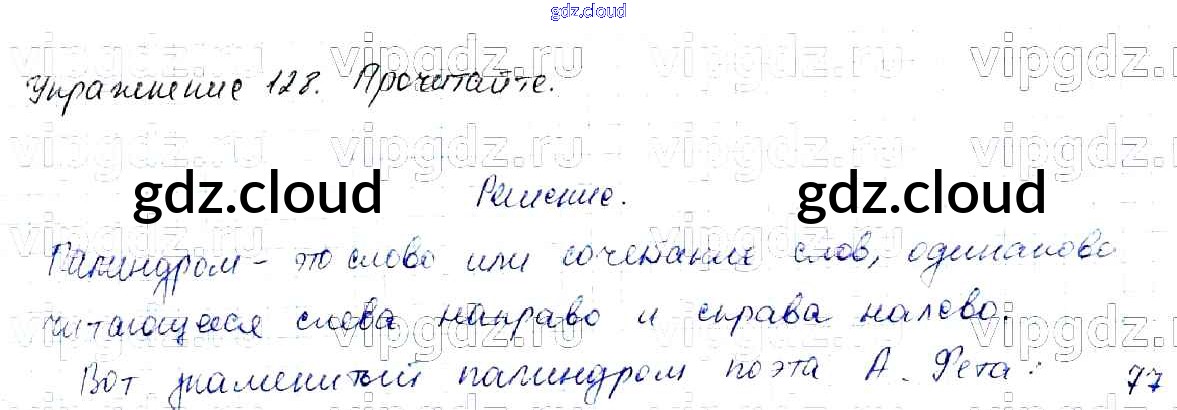 gdz.cloud
vipgdz.ru vipgdz.ru vipgdz.ru vipgdz.ru
Упражнение 128. Прочитайте.
vipgdz.ru vipgdz.ru vipgdz.ru vipgdz.ru
gdz.cloud gdz.cloud
Решение.
vipgdz.ru vipgdz.ru vipgdz.ru vipgdz.ru
Палиндром - это слово или сочетание слов, одинаково
читающееся слева направо и справа налево.
vipgdz.ru vipgdz.ru vipgdz.ru vipgdz.ru
Вот знаменитый палиндром поэта А. Фета:
77